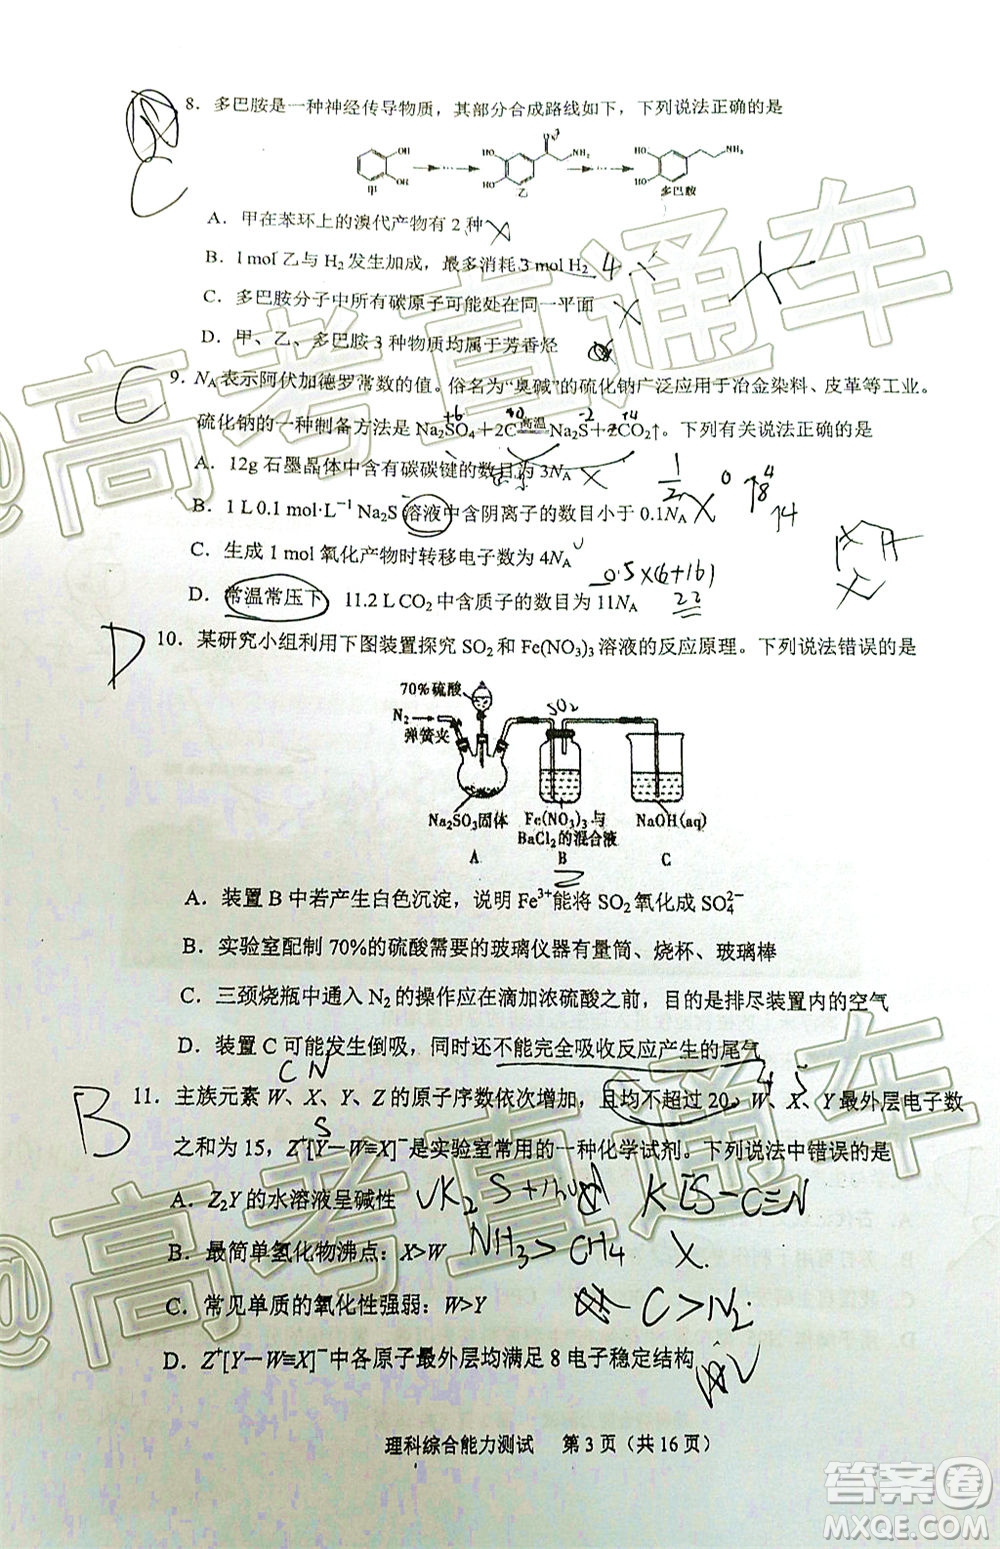 8．多巴胺是一种神经传导物质，其部分合成路线如下，下列说法正确的是
OH OH 甲 HO HO NH₂ 乙 HO HO NH₂ 多巴胺
C
A．甲在苯环上的溴代产物有 2 种
B．1 mol 乙与 H₂ 发生加成，最多消耗 3 mol H₂ 4
C．多巴胺分子中所有碳原子可能处在同一平面
D．甲、乙、多巴胺 3 种物质均属于芳香烃
C
9．N_A 表示阿伏加德罗常数的值。俗名为“臭碱”的硫化钠广泛应用于冶金染料、皮革等工业。
+6 0 -2 +4
硫化钠的一种制备方法是 Na₂SO₄＋2C 高温 Na₂S＋2CO₂↑。下列有关说法正确的是
A．12g 石墨晶体中含有碳碳键的数目为 3N_A
B．1 L 0.1 mol·L⁻¹ Na₂S 溶液中含阴离子的数目小于 0.1N_A
C．生成 1 mol 氧化产物时转移电子数为 4N_A
0.5×(6+16)
D．常温常压下 11.2 L CO₂ 中含质子的数目为 11N_A 22
D
10．某研究小组利用下图装置探究 SO₂ 和 Fe(NO₃)₃ 溶液的反应原理。下列说法错误的是
70%硫酸 SO₂
N₂
弹簧夹
Na₂SO₃固体 Fe(NO₃)₃ 与 NaOH(aq)
BaCl₂的混合液
A B C
A．装置 B 中若产生白色沉淀，说明 Fe³⁺能将 SO₂ 氧化成 SO₄²⁻
B．实验室配制 70%的硫酸需要的玻璃仪器有量筒、烧杯、玻璃棒
C．三颈烧瓶中通入 N₂ 的操作应在滴加浓硫酸之前，目的是排尽装置内的空气
D．装置 C 可能发生倒吸，同时还不能完全吸收反应产生的尾气
C N
B
11．主族元素 W、X、Y、Z 的原子序数依次增加，且均不超过 20。W、X、Y 最外层电子数
S
之和为 15，Z⁺[Y－W≡X]⁻是实验室常用的一种化学试剂。下列说法中错误的是
A．Z₂Y 的水溶液呈碱性
K[S－C≡N
B．最简单氢化物沸点：X>W NH₃>CH₄
C．常见单质的氧化性强弱：W>Y C>N₂
D．Z⁺[Y－W≡X]⁻中各原子最外层均满足 8 电子稳定结构
理科综合能力测试 第 3 页（共 16 页）
@高考直通车
@高考直通车
答案圈
MXQE.COM